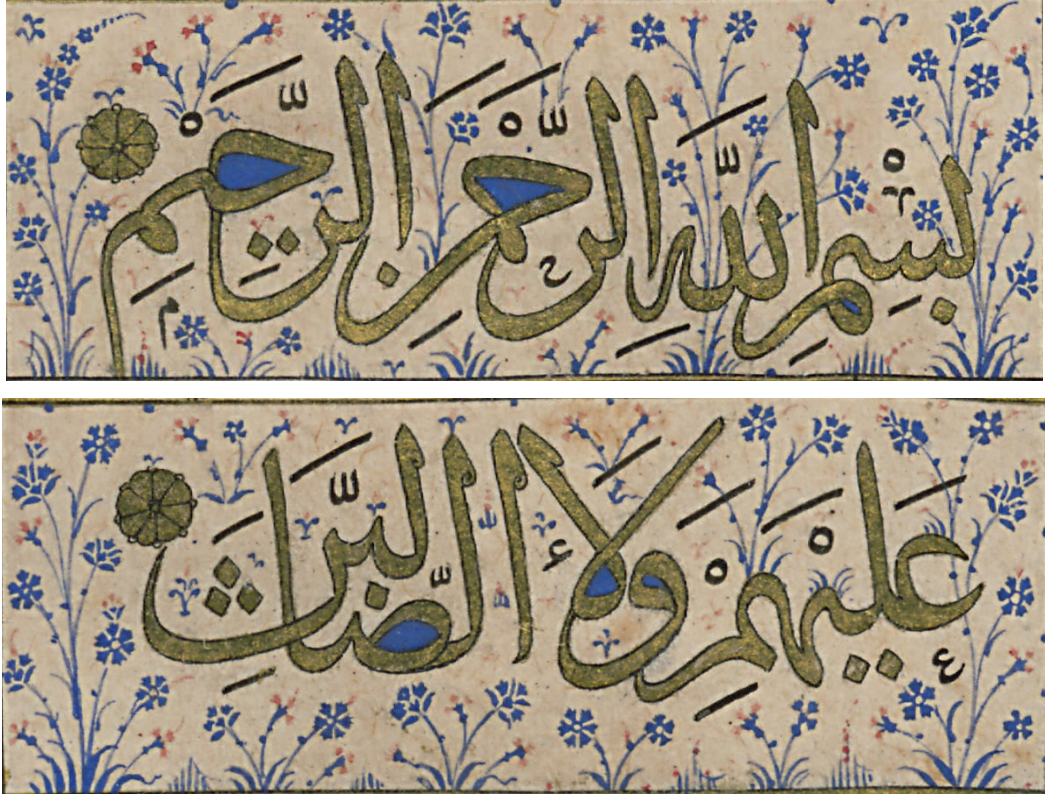 بِسْمِ اللَّهِ الرَّحْمَنِ الرَّحِيمِ
عَلَيْهِمْ وَلَا الضَّالِّينَ